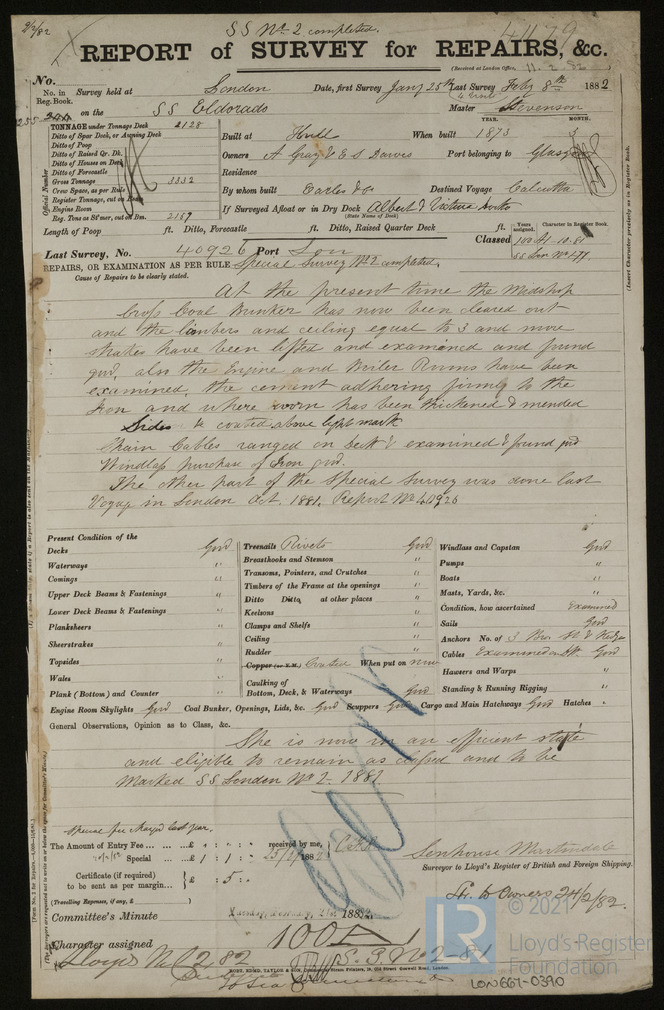 9/2/82
SS No. 2 completed.
REPORT of SURVEY for REPAIRS, &c.
(Received at London Office, 11. 2. 82
No.
No. in Reg. Book.
Survey held at London Date, first Survey Jany 25th Last Survey Feby 8th 1882
on the SS Eldorado Master Stevenson
TONNAGE under Tonnage Deck 2128
Ditto of Spar Deck, or Awning Deck
Ditto of Poop
Ditto of Raised Qr. Dk.
Ditto of Houses on Deck
Ditto of Forecastle
Gross Tonnage 3332
Crew Space, as per Rule
Register Tonnage, cut on Beam
Engine Room
Reg. Tons as St'mer, cut on Bm. 2157
Official Number
YEAR. MONTH.
Built at Hull When built 1873 3
Owners A Gray & E S Dawes Port belonging to Glasgow
Residence
By whom built Earles & Co Destined Voyage Calcutta
If Surveyed Afloat or in Dry Dock Albert & Victoria Docks
(State Name of Dock)
Length of Poop ft. Ditto, Forecastle ft. Ditto, Raised Quarter Deck ft.
Years assigned. Character in Register Book.
(Insert Character precisely as in Register Book.
Last Survey, No. 40926 Port Lon Classed 100 A1 10.81
SS Lon No. 1.77
REPAIRS, OR EXAMINATION AS PER RULE Special Survey No. 2 completed.
Cause of Repairs to be clearly stated.
At the present time the Midship
Cross Coal Bunker has now been cleared out
and the limbers and ceiling equal to 3 and more
strakes have been lifted and examined and found
good, also the Engine and Boiler Rooms have been
examined, the cement adhering firmly to the
Iron and where worn has been thickened & mended
Sides & coated above light mark
Chain Cables ranged on deck & examined & found good
Windlass purchase of Iron good.
The other part of the Special Survey was done last
Voyage in London Oct. 1881. Report No. 40926
Present Condition of the
Decks Good
Waterways "
Comings "
Upper Deck Beams & Fastenings "
Lower Deck Beams & Fastenings "
Planksheers "
Sheerstrakes "
Topsides "
Wales "
Plank (Bottom) and Counter "
Treenails Rivets Good
Breasthooks and Stemson "
Transoms, Pointers, and Crutches "
Timbers of the Frame at the openings "
Ditto Ditto at other places "
Keelsons "
Clamps and Shelfs "
Ceiling "
Rudder "
Copper (or Y.M.) Coated When put on now
Caulking of
Bottom, Deck, & Waterways Good
Windlass and Capstan Good
Pumps "
Boats "
Masts, Yards, &c. "
Condition, how ascertained Examined
Sails Good
Anchors No. of 3 Bow St & Kedges
Cables Examined on Dk. Good
Hawsers and Warps "
Standing & Running Rigging "
Engine Room Skylights Good Coal Bunker, Openings, Lids, &c. Good Scuppers Good Cargo and Main Hatchways Good Hatches "
General Observations, Opinion as to Class, &c.
She is now in an efficient state
and eligible to remain as classed and to be
Marked SS London No. 2. 1881.
Special fee charged last year.
The Amount of Entry Fee ... ... £ : " : "
Special ... £ 1 : 1 : "
received by me,
25/2/1882
Certificate (if required)
to be sent as per margin... £ : 5 : "
(Travelling Expenses, if any, £ )
Senhouse Martindale
Surveyor to Lloyd's Register of British and Foreign Shipping.
Lr. to Owners 24/2/82.
Committee's Minute Tuesday, February 21st 1882.
Character assigned 100 A 1
Lloyds M C 2.82 S. S. No 2-81
© 2021
LR
Lloyd's Register
Foundation
LON667-0390